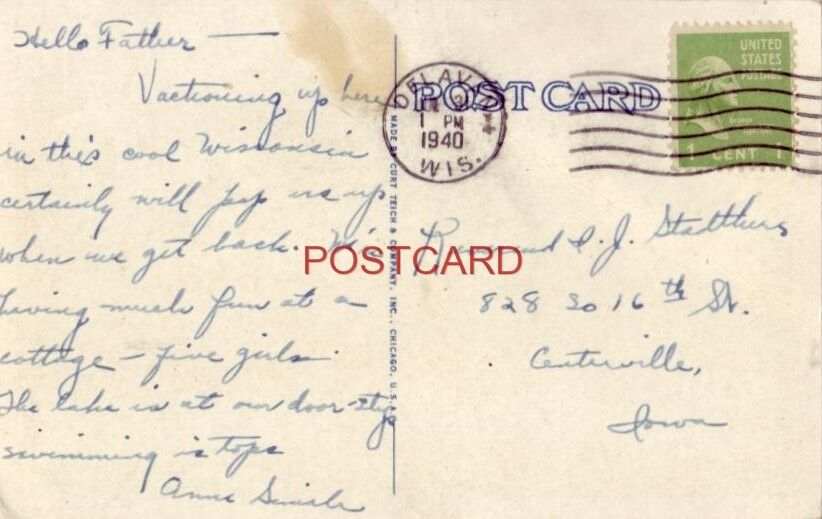 Hello Father —
Vactioning up here
in this cool Wisconsin
certainly will pep us up
when we get back. We're
having much fun at a
cottage — five girls.
The lake is at our door-step
swimming is tops
Anna
POST CARD
MADE BY CURT TEICH & COMPANY, INC., CHICAGO, U.S.A.
DELAV
1 PM
1940
WIS.
UNITED
STATES
POSTAGE
1 CENT 1
Reverend J.
828 So 16th St.
Centerville,
Iowa
POSTCARD